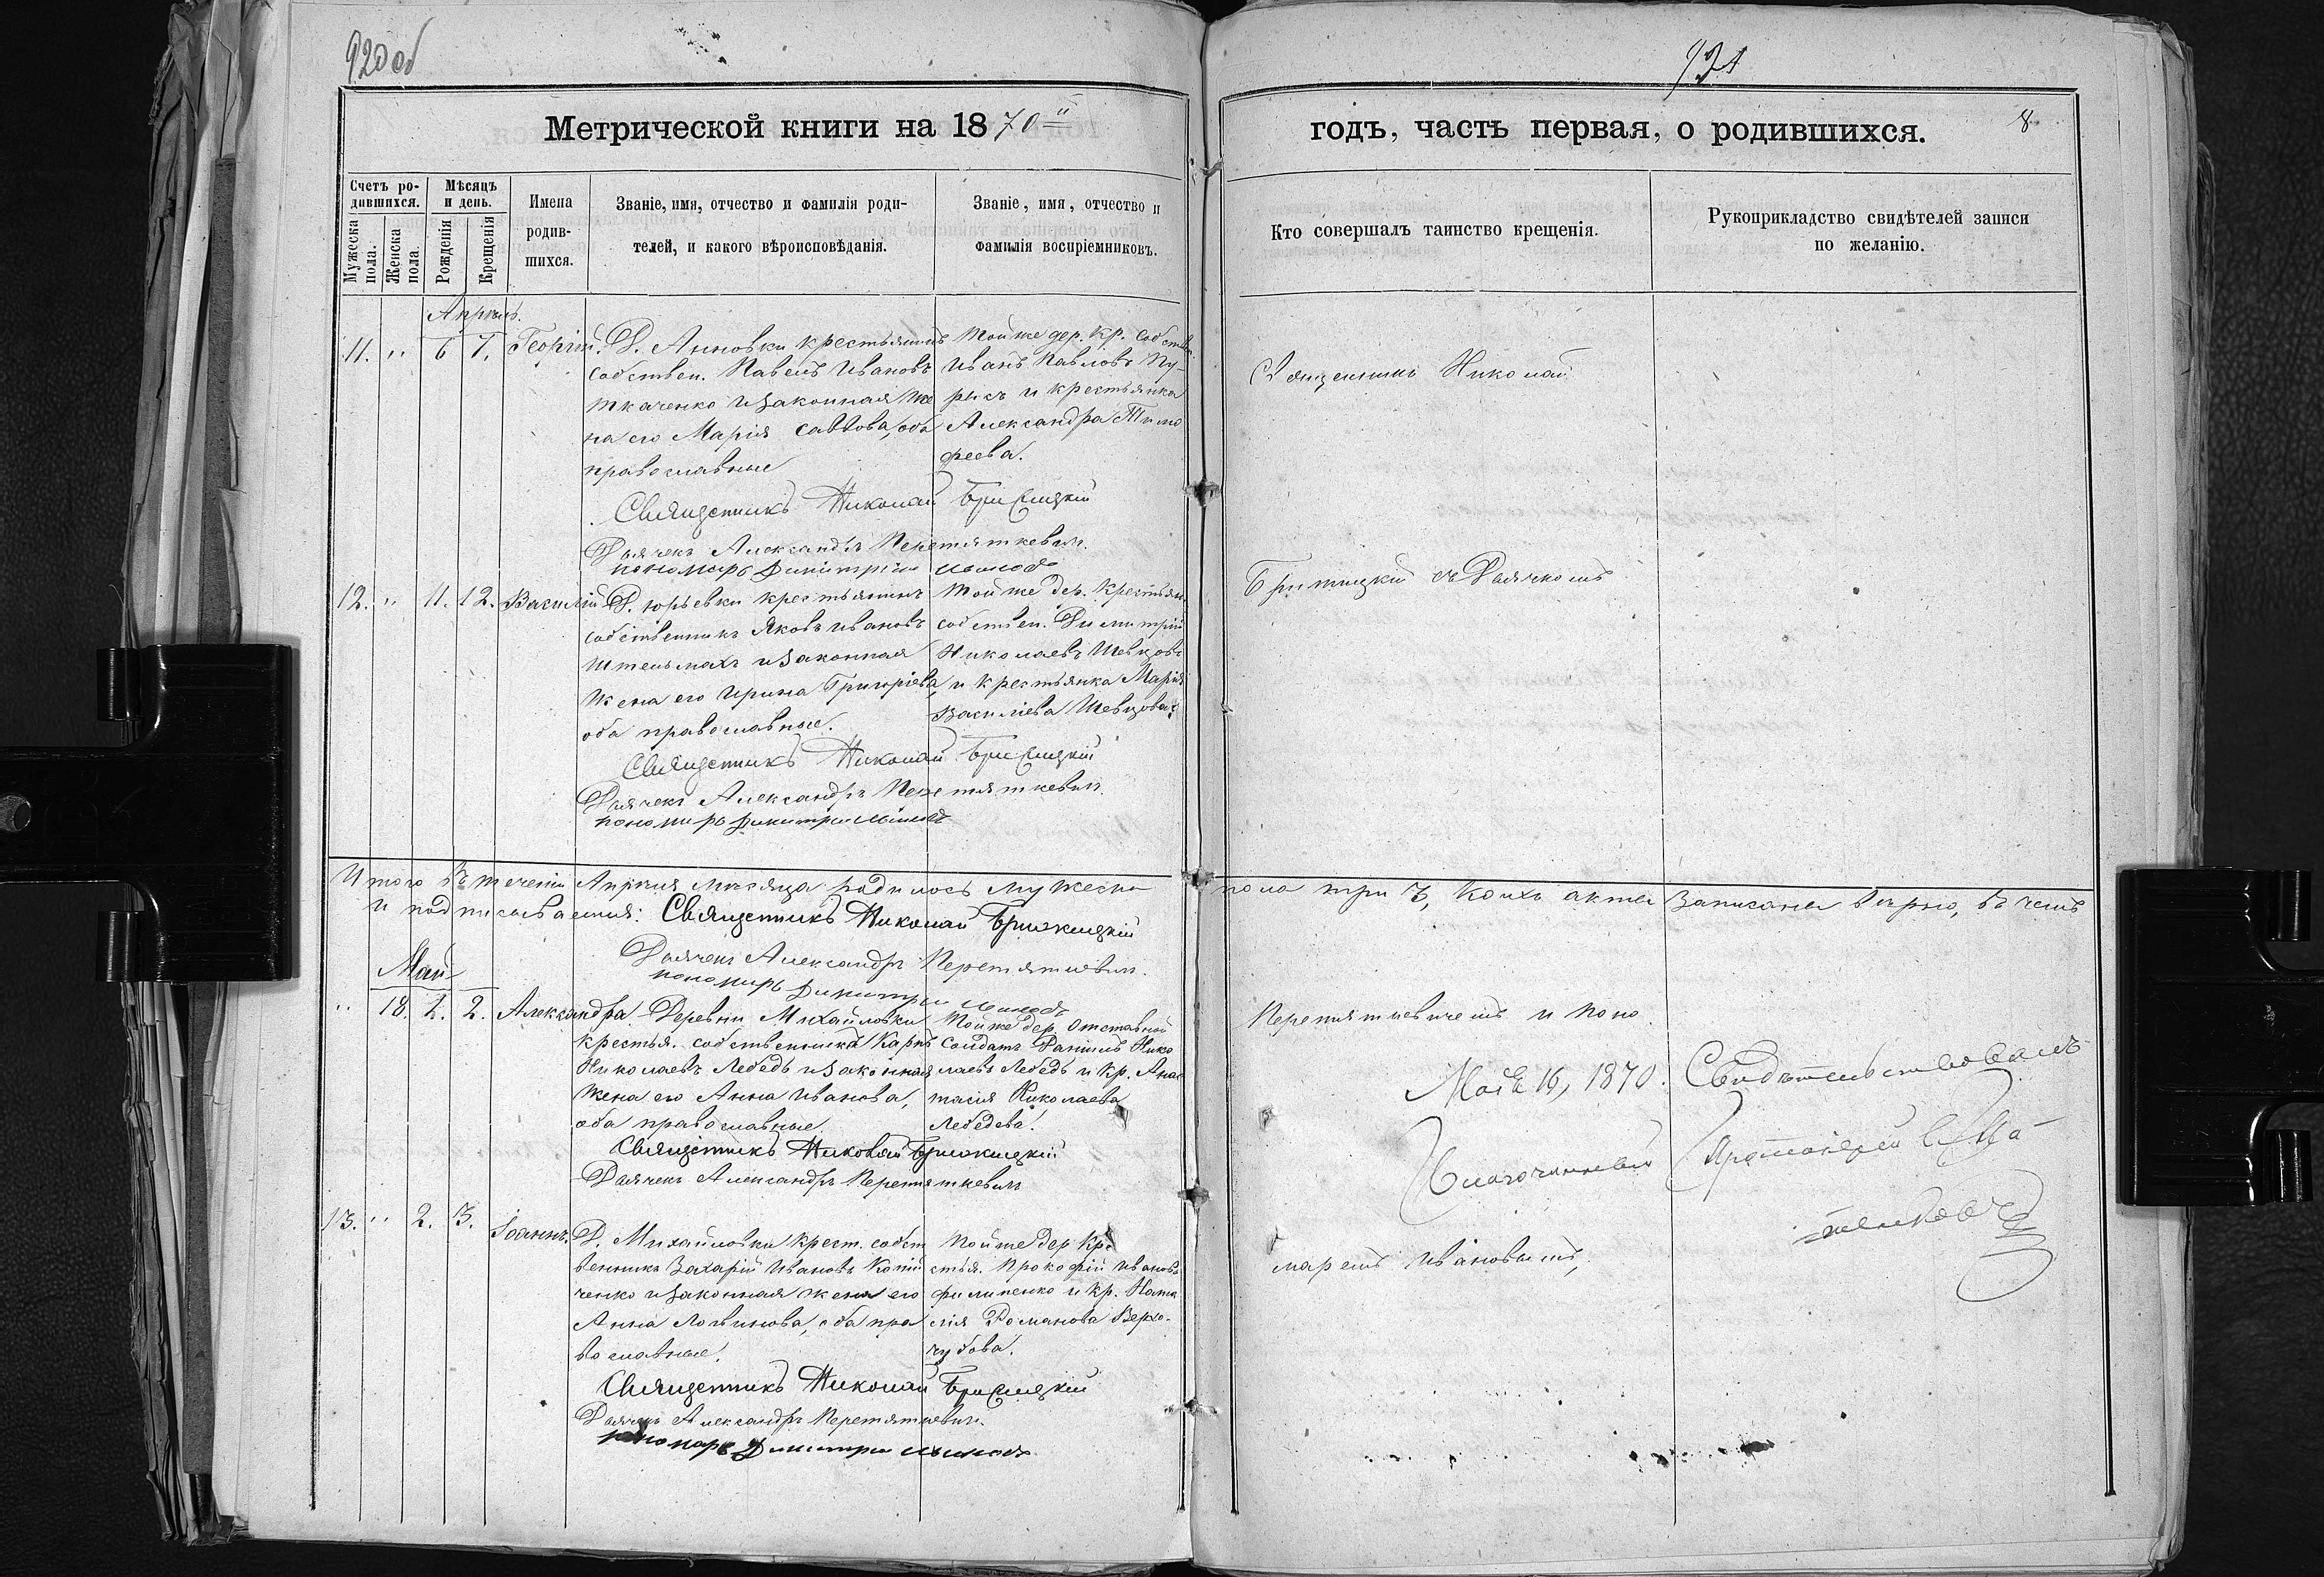 920 об
Метрической книги на 1870й
Счетъ родившихся.
Мѣсяцъ и день.
Имена родившихся.
Званіе, имя, отчество и фамилія родителей, и какого вѣроисповѣданія.
Званіе, имя, отчество и фамилія воспріемниковъ.
Мужеска пола.
Женска пола
Рожденія
Крещенія
Апрѣль.
11. " 6 7. Георгій.
Д. Анновки крестьянинъ
собствен. Павелъ Ивановъ
Ткаченко и законная же
на его Марія Саввова, оба
православные
Той же дер. кр. собствен.
Иванъ Павловъ
и крестьянка
Александра Тимо
феева.
Священникъ Николай
Дьячекъ Александръ Перетяткевичъ.
пономарь Димитрій
12. " 11. 12. Василій
Д. Юрьевки крестьянинъ
собственникъ Яковъ Ивановъ
Штельмахъ и законная
жена его Ирина Григоріева,
оба православные.
Той же дер. крестьян.
собствен. Димитрій
Николаевъ Шевцовъ
и крестьянка Марія
Василіева Шевцова.
Священникъ Николай
Дьячекъ Александръ Перетяткевичъ.
пономарь Димитрій
Итого въ теченіи Апрѣля мѣсяца родилось мужеска
и подписываемся: Священникъ Николай
Дьячекъ Александръ Перетяткевичъ.
пономарь Димитрій
Май
" 18. 1. 2. Александра
Деревни Михайловки
крестья. собственника Карпъ
Николаевъ Лебедь и законная
жена его Анна Иванова,
оба православные.
Той же дер. отставной
солдатъ Даніилъ Нико
лаевъ Лебедь и кр. Анас
тасія Николаева
Лебедева.
Священникъ Николай
Дьячекъ Александръ Перетяткевичъ
13. " 2. 3. Іоаннъ.
Д. Михайловки крест. собст
венникъ Захарій Ивановъ
ченко и законная жена его
Анна Логвинова, оба пра
вославные.
Той же дер. кре
стья. Прокофій Ивановъ
Филипенко и кр. Ната
лія Романова Верхо-
чубова.
Священникъ Николай
Дьячекъ Александръ Перетяткевичъ.
пономарь Димитрій
921
годъ, часть первая, о родившихся.
8
Кто совершалъ таинство крещенія.
Рукоприкладство свидѣтелей записи по желанію.
Священникъ Николай
съ Дьячкомъ
пола три 3, коихъ акты записаны вѣрно, въ чемъ
Перетяткевичемъ и поно
Мая 16, 1870. Свидѣтельствовалъ
Благочинный Протоіерей
маремъ Ивановымъ,